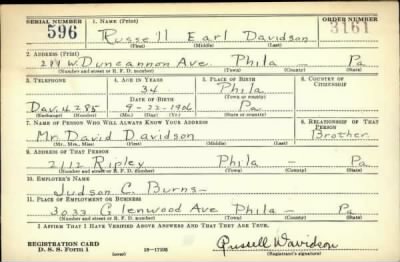 SERIAL NUMBER 1. NAME (Print) ORDER NUMBER
596 Russell Earl Davidson 3161
(First) (Middle) (Last)
2. ADDRESS (Print)
211 W. Duncannon Ave. Phila — Pa
(Number and street or R. F. D. number) (Town) (County) (State)
3. TELEPHONE 4. AGE IN YEARS 5. PLACE OF BIRTH 6. COUNTRY OF CITIZENSHIP
34 Phila
DATE OF BIRTH (Town or county)
Dav. 4285 9-22-1906 Pa.
(Exchange) (Number) (Mo.) (Day) (Yr.) (State or country)
7. NAME OF PERSON WHO WILL ALWAYS KNOW YOUR ADDRESS 8. RELATIONSHIP OF THAT PERSON
Mr. David Davidson Brother
(Mr., Mrs., Miss) (First) (Middle) (Last)
9. ADDRESS OF THAT PERSON
2112 Ripley Phila — Pa
(Number and street or R. F. D. number) (Town) (County) (State)
10. EMPLOYER'S NAME
Judson C. Burns —
11. PLACE OF EMPLOYMENT OR BUSINESS
3033 Glenwood Ave Phila — Pa.
(Number and street or R. F. D. number) (Town) (County) (State)
I AFFIRM THAT I HAVE VERIFIED ABOVE ANSWERS AND THAT THEY ARE TRUE.
REGISTRATION CARD
D. S. S. Form 1 (over) 16—17105 Russell Davidson
(Registrant's signature)